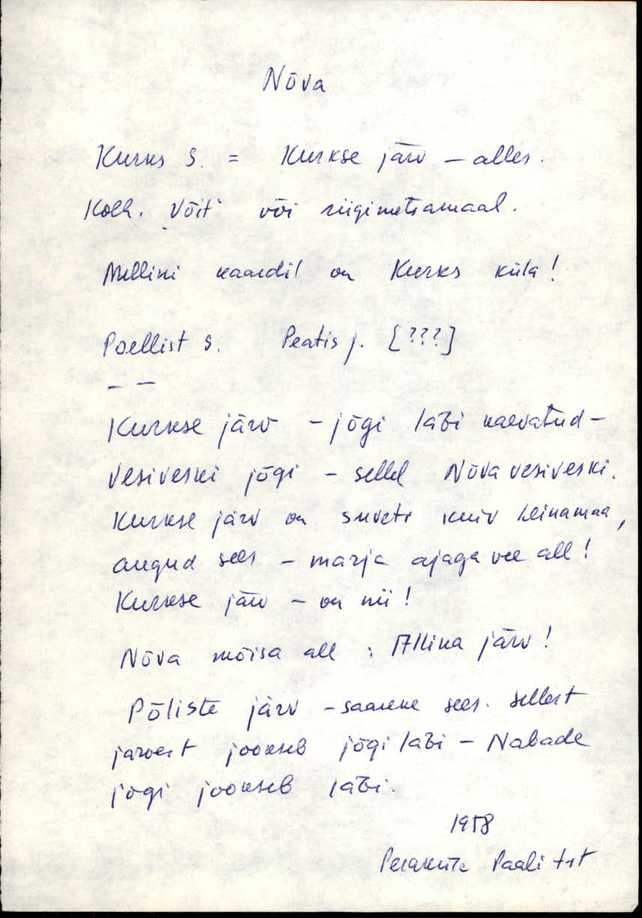 Nõva
Kurks s. = Kurkse järv – alles.
Kolh. Võit või riigimetsamaal.
Mellini kaardil on Kurks küla!
Poellist s. Peatis j. [???]
– –
Kurkse järv – jõgi läbi kaevatud –
vesiveski jõgi – sellel Nõva vesiveski.
Kurkse järv on suveti kuiv heinamaa,
augud sees – marja ajaga vee all!
Kurkse järv – on nii!
Nõva mõisa all : Allika järv!
Põliste järv – saareke sees. Sellest
järvest jookseb jõgi läbi – Nabade
jõgi jookseb läbi.
1958
Paali